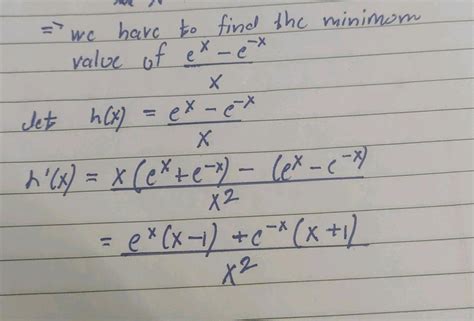 ⇒ we have to find the minimum
value of (e^x - e^-x)/x
let h(x) = (e^x - e^-x)/x
h'(x) = (x(e^x + e^-x) - (e^x - e^-x))/x^2
= (e^x(x-1) + e^-x(x+1))/x^2